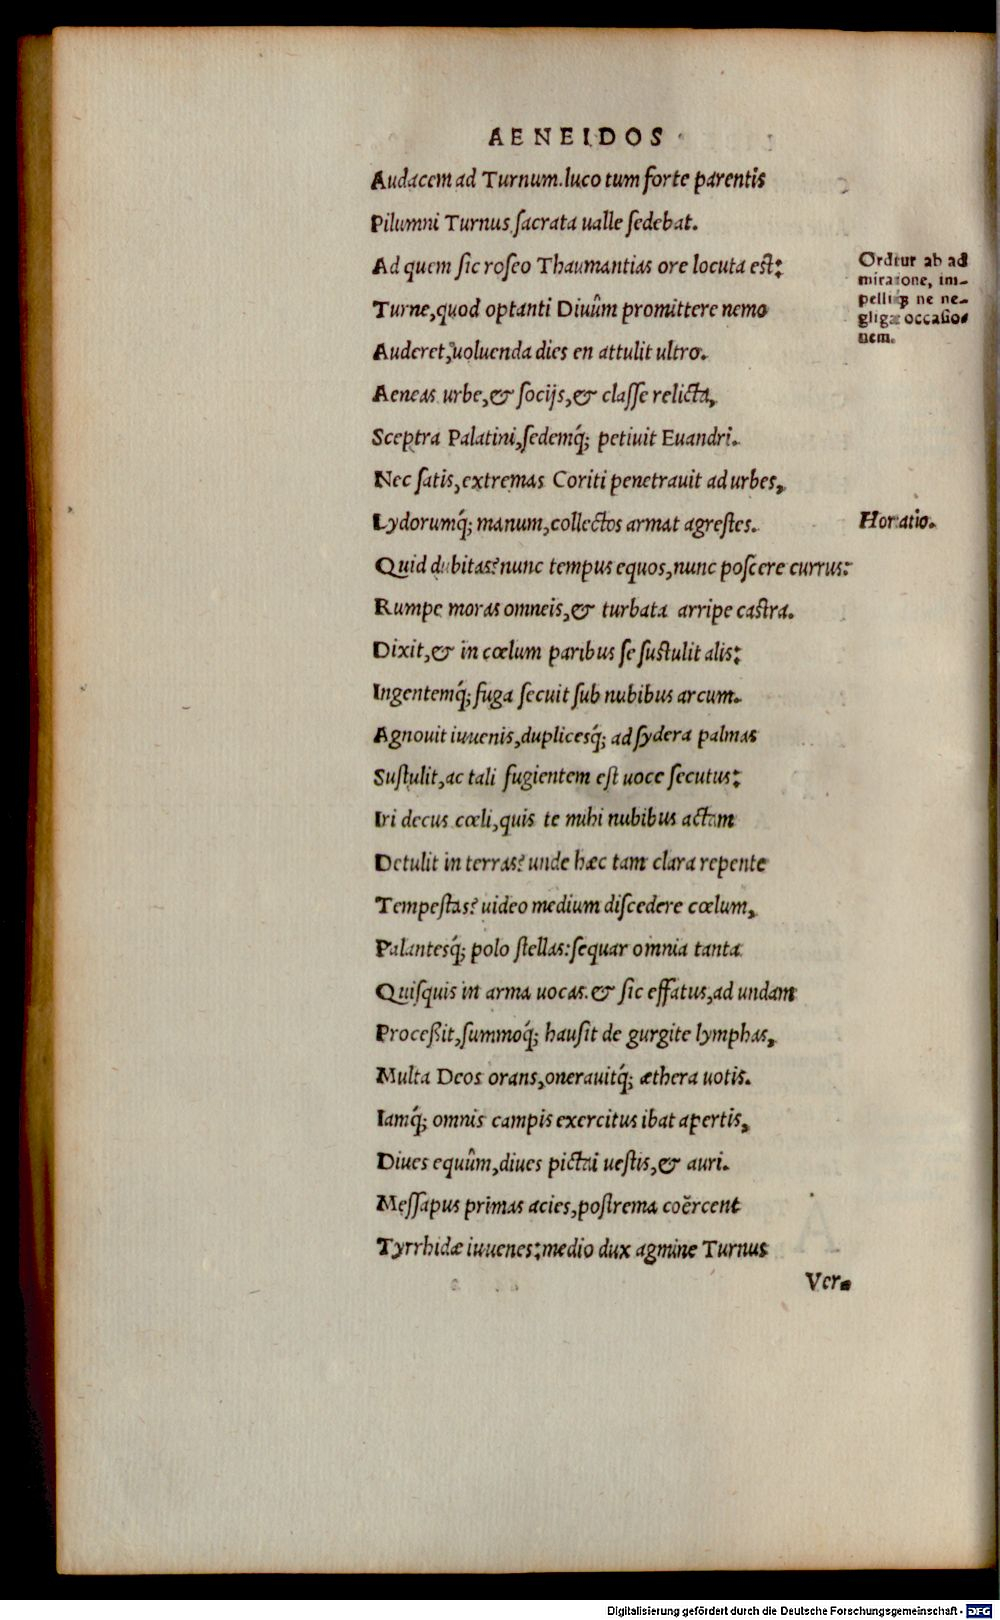 AENEIDOS
Audacem ad Turnum. luco tum forte parentis
Pilumni Turnus sacrata ualle sedebat.
Ad quem sic roseo Thaumantias ore locuta est:
Turne, quod optanti Diuûm promittere nemo
Auderet, uoluenda dies en attulit ultro.
Aeneas urbe, & socijs, & classe relicta,
Sceptra Palatini, sedemq́; petiuit Euandri.
Nec satis, extremas Coriti penetrauit ad urbes,
Lydorumq́; manum, collectos armat agrestes.
Quid dubitas? nunc tempus equos, nunc poscere currus:
Rumpe moras omneis, & turbata arripe castra.
Dixit, & in cœlum paribus se sustulit alis:
Ingentemq́; fuga secuit sub nubibus arcum.
Agnouit iuuenis, duplicesq́; ad sydera palmas
Sustulit, ac tali fugientem est uoce secutus:
Iri decus cœli, quis te mihi nubibus actam
Detulit in terras? unde hæc tam clara repente
Tempestas? uideo medium discedere cœlum,
Palantesq́; polo stellas: sequar omnia tanta
Quisquis in arma uocas. & sic effatus, ad undam
Proceßit, summoq́; hausit de gurgite lymphas,
Multa Deos orans, onerauitq́; æthera uotis.
Iamq́; omnis campis exercitus ibat apertis,
Diues equûm, diues pictai uestis, & auri.
Messapus primas acies, postrema coërcent
Tyrrhidæ iuuenes: medio dux agmine Turnus
Ver-
Orditur ab ad
miratione, im-
pellitq; ne ne-
gligat occasio-
nem.
Hortatio.
Digitalisierung gefördert durch die Deutsche Forschungsgemeinschaft - DFG